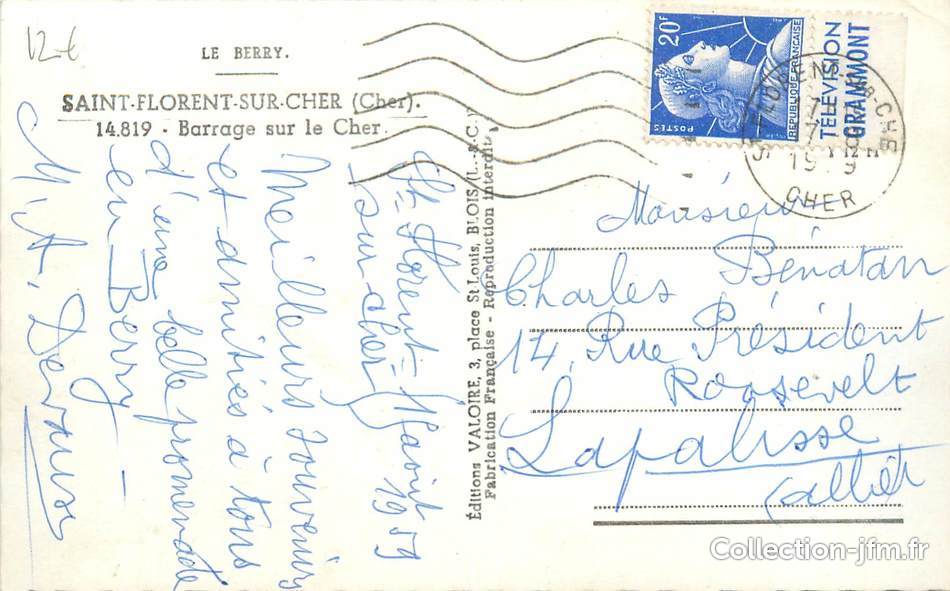 12 €
LE BERRY.
SAINT-FLORENT-SUR-CHER (Cher).
14.819 - Barrage sur le Cher
St Florent
sur-cher août
1959
Meilleurs souvenirs
et amitiés à tous
d'une belle promenade
en Berry -
M. A.
Éditions VALOIRE, 3, place St Louis, BLOIS (L.-&-C.)
Fabrication Française - Reproduction interdite
20F
POSTES
REPUBLIQUE FRANÇAISE
TÉLÉVISION
GRAMMONT
CHER
Monsieur
Charles Bénatan
14, Rue Président
Roosevelt
Lapalisse
(allier)
Collection-jfm.fr